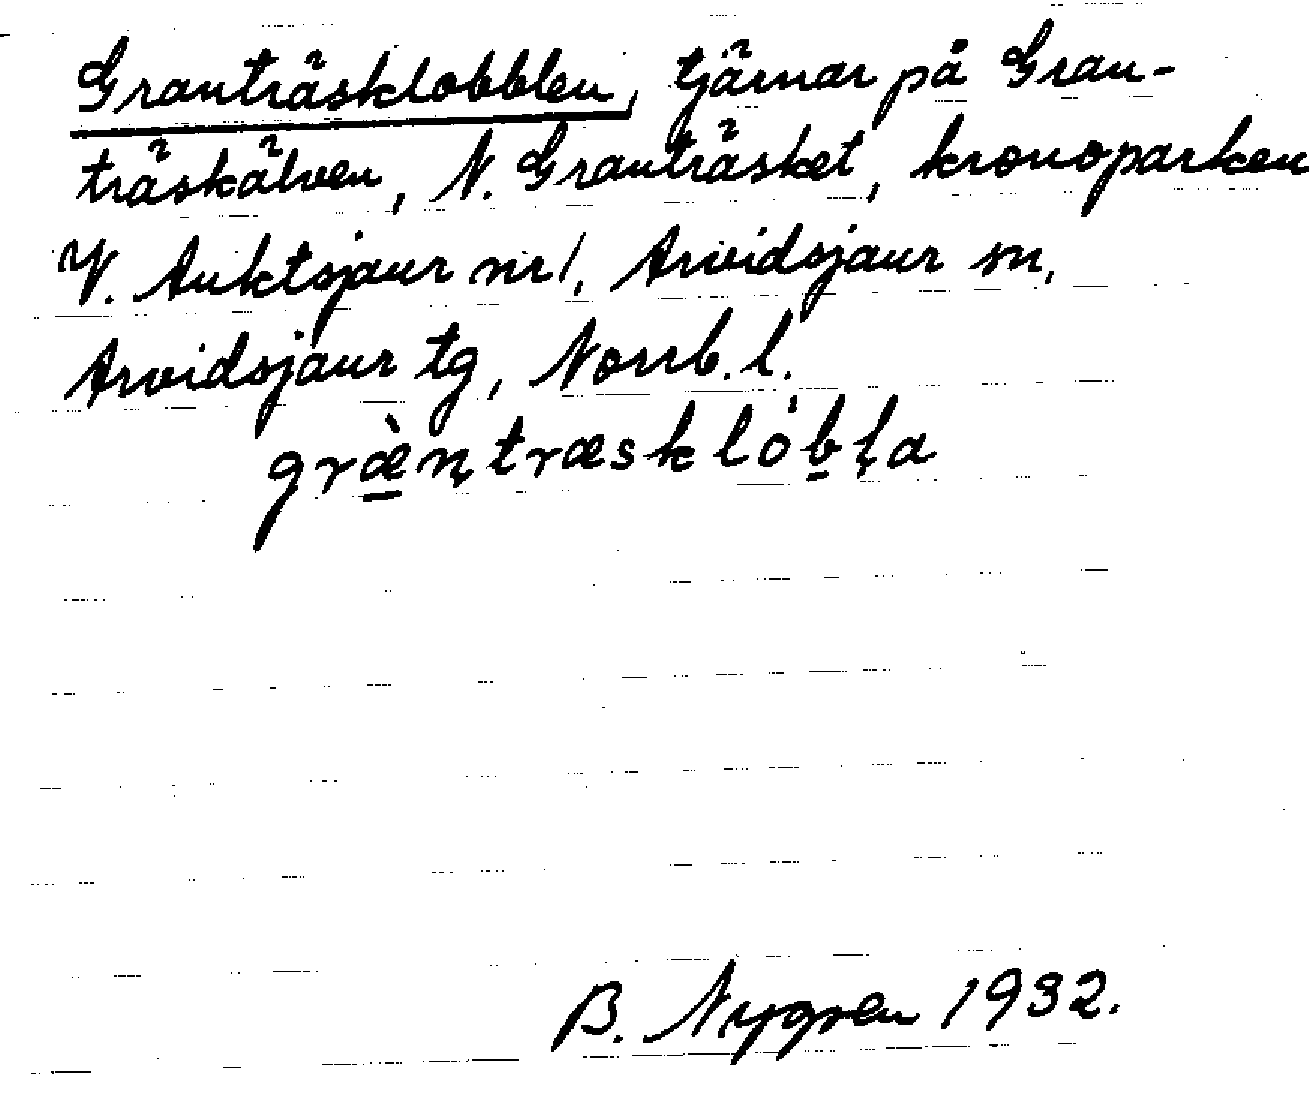 Granträsklobblen, tjärnar på Gran-
träskälven, N. Granträsket, kronoparken
V. Auktsjaur nr 1, Arvidsjaur sn,
Arvidsjaur tg, Norrb. l.
græ̀ṇtræsklóbḷa
B. Nygren 1932.